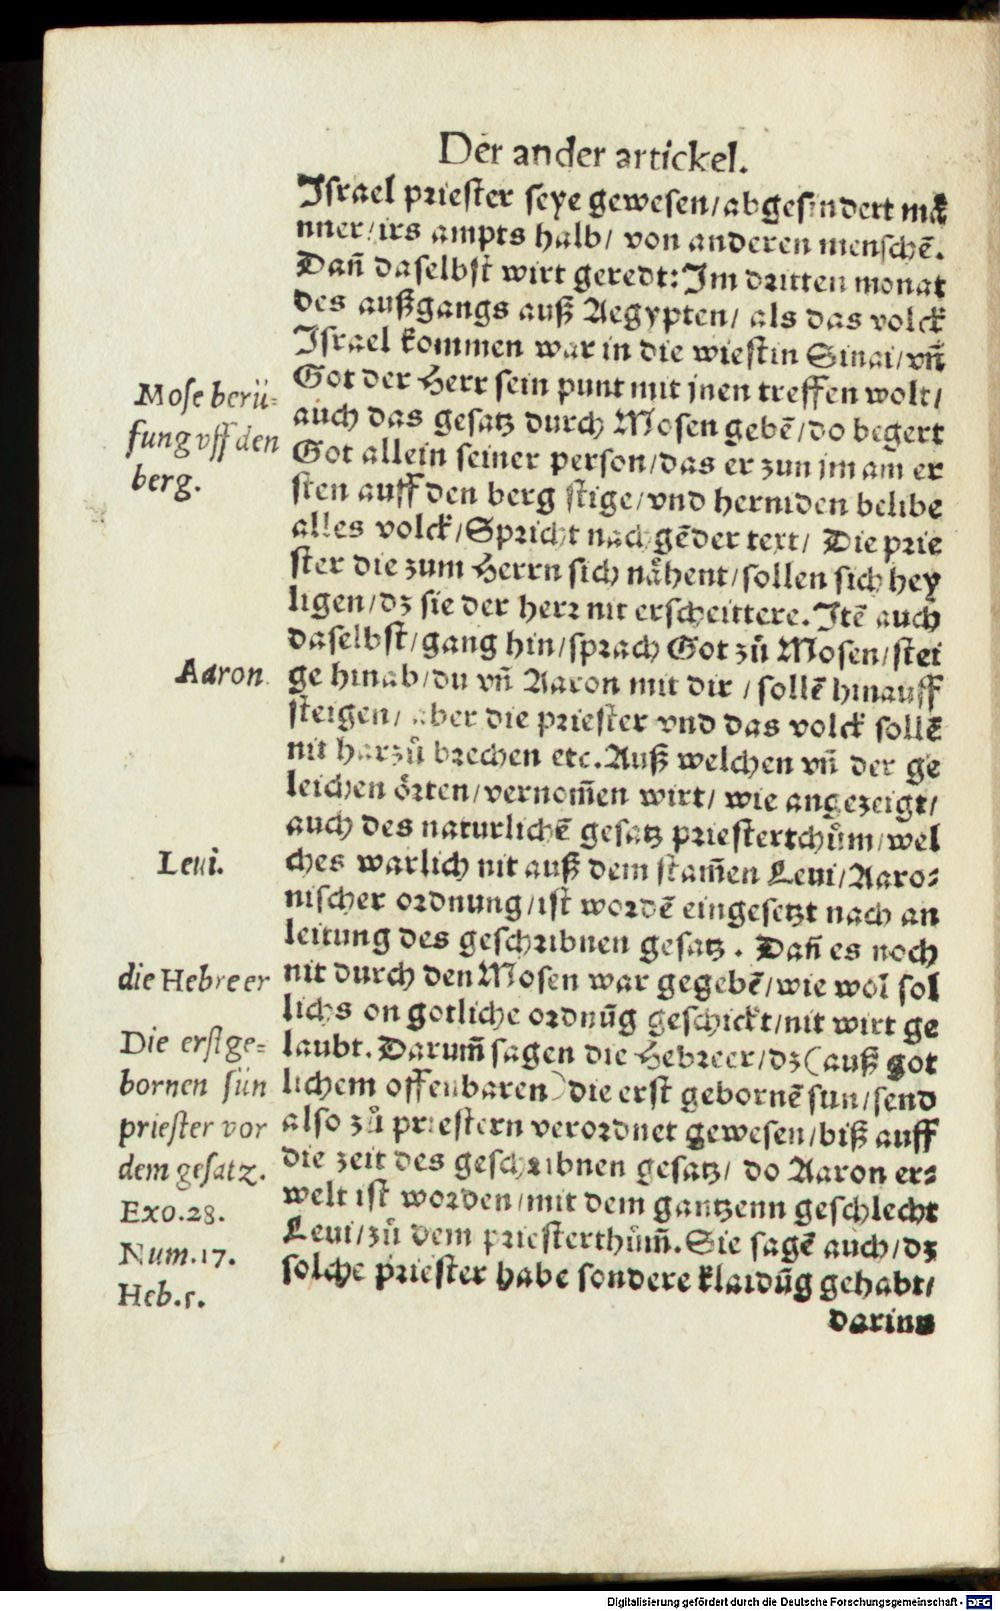 Der ander artickel.
Israel priester seye gewesen/abgesundert mā
nner/irs ampts halb/ von anderen menschē.
Dañ daselbst wirt geredt: Im dritten monat
des außgangs auß Aegypten/ als das volck
Israel kommen war in die wiestin Sinai/vñ
Got der Herr sein punt mit jnen treffen wolt/
Mose berü-
fung vff den
berg.
auch das gesatz durch Mosen gebē/do begert
Got allein seiner person/das er zun im am er
sten auff den berg stige/vnd herniden belibe
alles volck/Spricht nachgēder text/ Die prie
ster die zum Herrn sich nåhent/sollen sich hey
ligen/dz sie der herr nit erscheittere. Itē auch
daselbst/gang hin/sprach Got zů Mosen/stei
Aaron.
ge hinab/du vñ Aaron mit dir/sollē hinauff
steigen/ aber die priester vnd das volck sollē
nit harzů brechen etc. Auß welchen vñ der ge
leichen örten/vernom̄en wirt/ wie angezeigt/
auch des naturlichē gesatz priestertchům/wel
Leui.
ches warlich nit auß dem stam̄en Leui/Aaro-
nischer ordnung/ist wordē eingesetzt nach an
leitung des geschribnen gesatz. Dañ es noch
die Hebreer
nit durch den Mosen war gegebē/wie wol sol
lichs on gotliche ordnūg geschickt/nit wirt ge
Die erstge-
bornen sün
priester vor
dem gesatz.
Exo.28.
Num.17.
Heb.5.
laubt. Darum̄ sagen die Hebreer/dz (auß got
lichem offenbaren) die erst gebornē sun/send
also zů priestern verordnet gewesen/biß auff
die zeit des geschribnen gesatz/ do Aaron er-
welt ist worden/mit dem gantzenn geschlecht
Leui/zů dem priesterthům̄. Sie sagē auch/dz
solche priester habe sondere klaidūg gehabt/
darinn
Digitalisierung gefördert durch die Deutsche Forschungsgemeinschaft - DFG